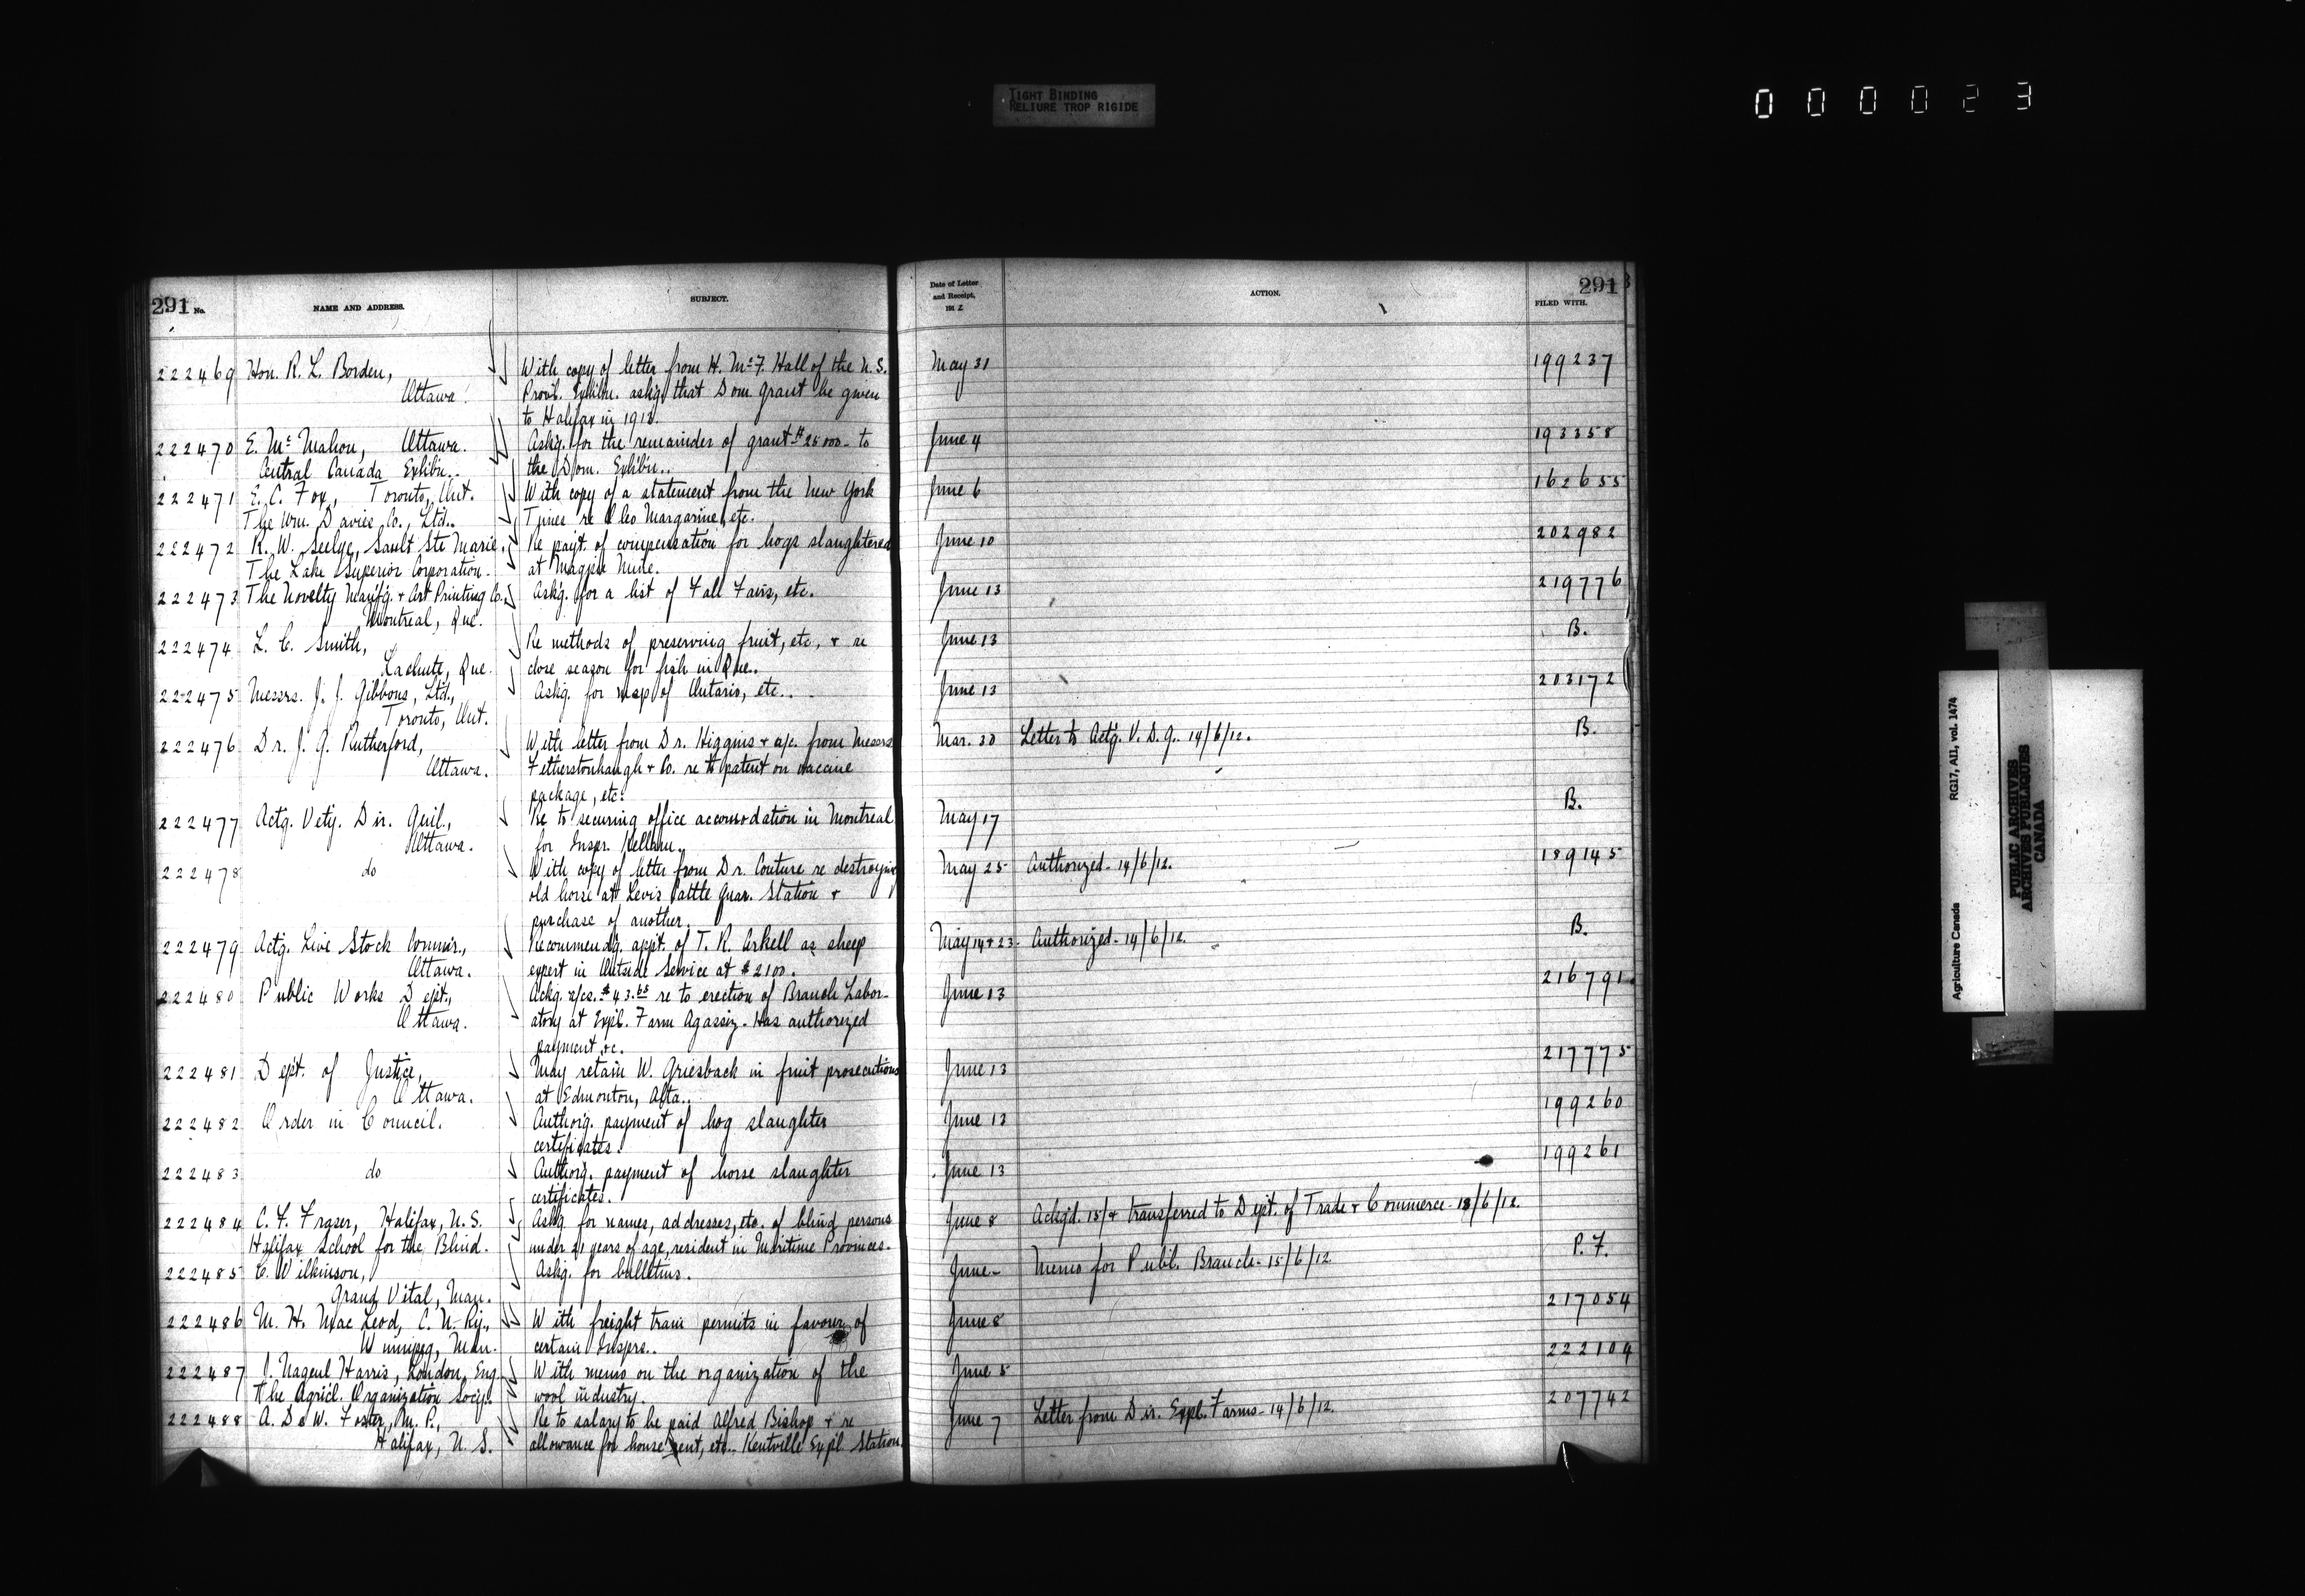 TIGHT BINDING
RELIURE TROP RIGIDE
000023
291 No. NAME AND ADDRESS. SUBJECT.
Date of Letter and Receipt, 1912 ACTION. FILED WITH. 291
222469 Hon. R. L. Borden, With copy of letter from H. McF. Hall of the N. S. May 31 199237
Ottawa. Provl. Exhibn. askg. that Dom. grant be given
to Halifax in 1913.
222470 E. McMahon, Ottawa. Askg. for the remainder of grant $25000 - to June 4 193358
Central Canada Exhibn.. the Dom. Exhibn..
222471 E. C. Fox, Toronto, Ont. With copy of a statement from the New York June 6 162655
The Wm. Davies Co., Ltd.. Times re Oleo Margarine, etc.
222472 R. W. Seelye, Sault Ste Marie, Re payt. of compensation for hogs slaughtered June 10 202982
The Lake Superior Corporation. at Magpie Mine.
222473 The Novelty Manfg. + Art Printing Co., Askg. for a list of Fall Fairs, etc. June 13 219776
Montreal, Que.
222474 L. C. Smith, Re methods of preserving fruit, etc, + re June 13 B.
Lachute, Que. close season for fish in Que..
222475 Messrs. J. J. Gibbons, Ltd., Askg. for map of Ontario, etc.. June 13 203172
Toronto, Ont.
222476 Dr. J. G. Rutherford, With letter from Dr. Higgins + a/c. from Messrs Mar. 30 Letter to Actg. V. D. G. 14/6/12. B.
Ottawa. Fetherstonhaugh + Co. re to patent on vaccine
package, etc.
222477 Actg. Vety. Dir. Genl., Re to securing office accomodation in Montreal May 17 B.
Ottawa. for Inspr. Kellam..
222478 do With copy of letter from Dr. Couture re destroying May 25 Authorized - 14/6/12. 189145
old horse at Levis Cattle Quar. Station +
purchase of another.
222479 Actg. Live Stock Commr., Recommendg. appt. of T. R. Arkell as sheep May 14 + 23 - Authorized - 14/6/12. B.
Ottawa. expert in Outside Service at $2100.
222480 Public Works Dept., Ackg. a/cs. $43.65 re to erection of Branch Labor- June 13 216791
Ottawa. atory at Expl. Farm Agassiz. Has authorized
payment, &c.
222481 Dept. of Justice, May retain W. Griesback in fruit prosecutions June 13 217775
Ottawa. at Edmonton, Alta..
222482 Order in Council. Authorg. payment of hog slaughter June 13 199260
certificates.
222483 do Authorg. payment of horse slaughter June 13 199261
certificates.
222484 C. F. Fraser, Halifax, N. S. Askg. for names, addresses, etc. of blind persons June 8 Ackg'd. 15/+ transferred to Dept. of Trade + Commerce - 18/6/12.
Halifax School for the Blind. under 21 years of age, resident in Maritime Provinces.
222485 C. Wilkinson, Askg. for bulletins. June - Memo for Publ. Branch - 15/6/12. P. F.
Grand Vital, Man.
222486 M. H. MacLeod, C. N. Ry., With freight train permits in favour of June 8 217054
Winnipeg, Man. certain Insprs..
222487 J. Nugent Harris, London, Eng. With memo on the organization of the June 5 222104
The Agricl. Organization Socy.. wool industry.
222488 A. DeW. Foster, M. P., Re to salary to be paid Alfred Bishop + re June 7 Letter from Dir. Expl. Farms - 14/6/12. 207742
Halifax, N. S. allowance for house rent, etc.. Kentville Expl. Station.
Agriculture Canada RG17, AII, vol. 1474
PUBLIC ARCHIVES
ARCHIVES PUBLIQUES
CANADA